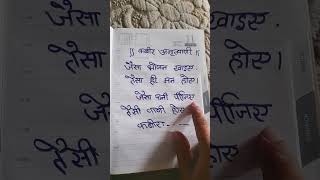 ॥ कबीर अमृतवाणी ॥
जैसा भोजन खाइए
तैसा ही मन होए।
जैसा पानी पीजिए
तैसी वाणी होए
कबीर:-